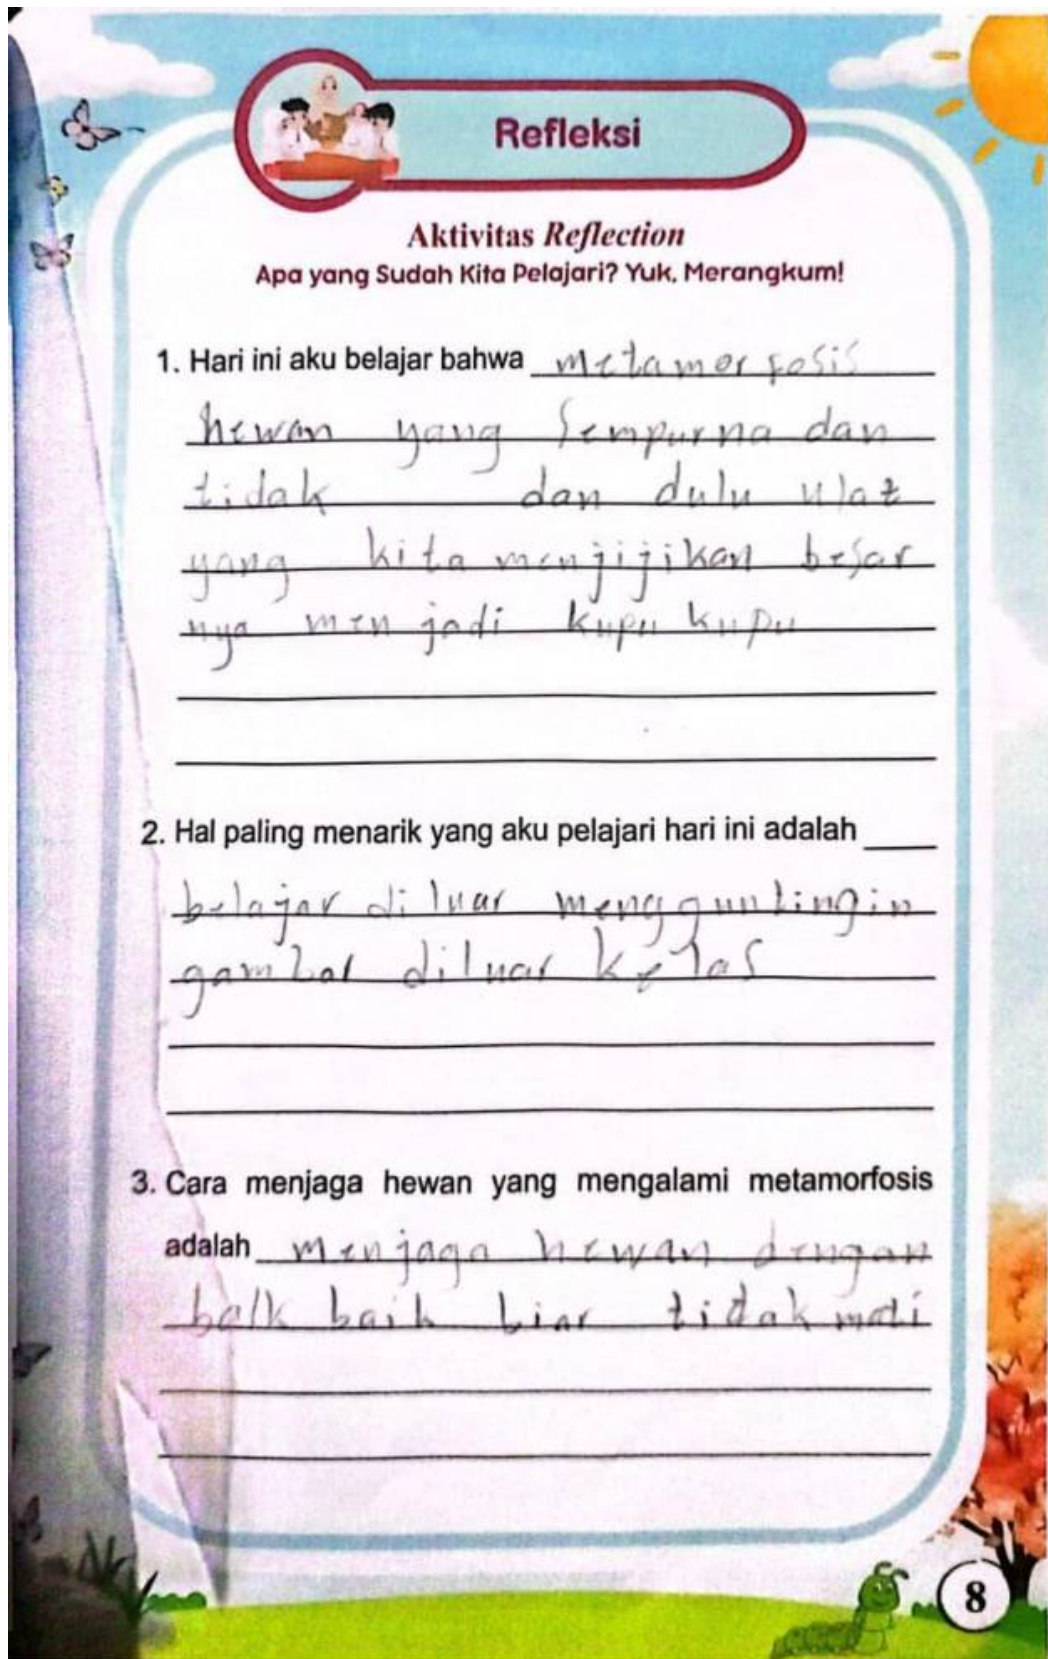 Refleksi
Aktivitas Reflection
Apa yang Sudah Kita Pelajari? Yuk, Merangkum!
1. Hari ini aku belajar bahwa metamorfosis
hewan yang sempurna dan
tidak dan dulu ulat
yang kita menjijikan besar
nya menjadi kupu kupu
2. Hal paling menarik yang aku pelajari hari ini adalah
belajar diluar menggguntingin
gambar diluar kelas
3. Cara menjaga hewan yang mengalami metamorfosis
adalah menjaga hewan dengan
baik baik biar tidak mati
8